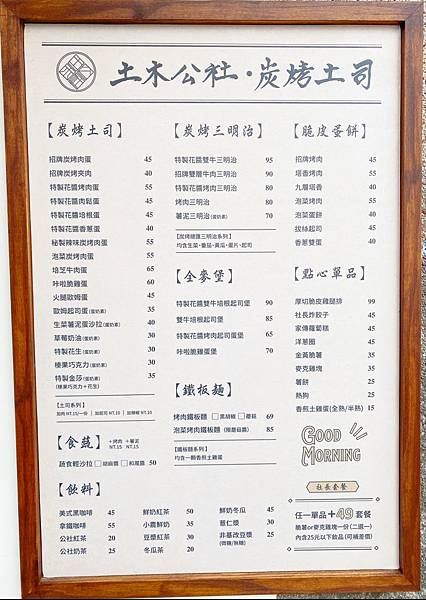 土木公社·炭烤土司
【炭烤土司】
招牌炭烤肉蛋 45
招牌炭烤夾肉 40
特製花醬烤肉蛋 55
特製花醬肉鬆蛋 45
特製花醬培根蛋 45
特製花醬香蔥蛋 40
秘製辣味炭烤肉蛋 55
泡菜炭烤肉蛋 55
培芝牛肉蛋 65
咔啦脆雞蛋 60
火腿歐姆蛋 45
歐姆起司蛋(蛋奶素) 35
生菜薯泥蛋沙拉(蛋奶素) 40
草莓奶油(蛋奶素) 30
特製花生(蛋奶素) 30
榛果巧克力(蛋奶素) 30
特製金莎(蛋奶素) 35
(榛果巧克力+花生)
【土司系列】
加肉 NT.15/一份 | 加蛋 NT.10 | 加辣椒 NT.10
【食蔬】
+烤肉 NT.15 +薯泥 NT.15
蔬食輕沙拉 □胡麻醬 □和風醬 50
【飲料】
美式黑咖啡 45
拿鐵咖啡 55
公社紅茶 20
公社奶茶 25
鮮奶紅茶 50
小農鮮奶 35
豆漿紅茶 30
冬瓜茶 20
鮮奶冬瓜 45
薏仁漿 30
非基改豆漿 25
(微糖/無糖)
【炭烤三明治】
特製花醬雙牛三明治 95
招牌雙層牛肉三明治 90
特製花醬烤肉三明治 80
烤肉三明治 80
薯泥三明治(蛋奶素) 70
【炭烤總匯三明治系列】
均含生菜、番茄、黃瓜、蛋片、起司
【全麥堡】
特製花醬雙牛培根起司堡 90
雙牛培根起司堡 85
特製花醬烤肉起司蛋堡 65
咔啦脆雞蛋堡 70
【鐵板麵】
烤肉鐵板麵 □黑胡椒 □蘑菇 69
泡菜烤肉鐵板麵 (限蘑菇醬) 85
【鐵板麵系列】
均含一顆香煎土雞蛋
【脆皮蛋餅】
招牌烤肉 45
塔香烤肉 55
九層塔香 40
泡菜烤肉 55
泡菜蛋餅 40
拔絲起司 45
香蔥雙蛋 40
【點心單品】
厚切脆皮雞腿排 99
社長炸餃子 45
家傳蘿蔔糕 45
洋蔥圈 45
金黃脆薯 35
麥克雞塊 35
薯餅 25
熱狗 25
香煎土雞蛋(全熟/半熟) 15
GOOD
MORNING
社長套餐
任一單品+49套餐
脆薯or麥克雞塊一份(二選一)
內含25元以下飲品(可補差價)